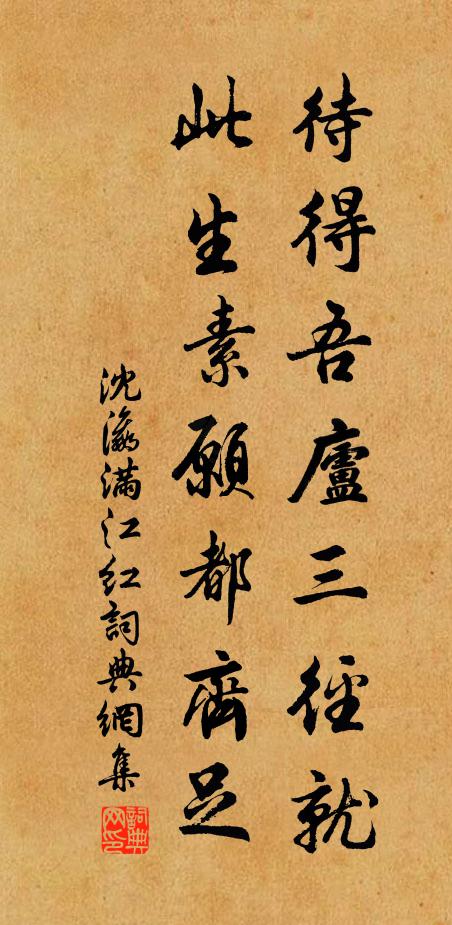 待得吾廬三徑就
此生素願都齊足
沈瀛滿江紅詞典網集
詞典網印